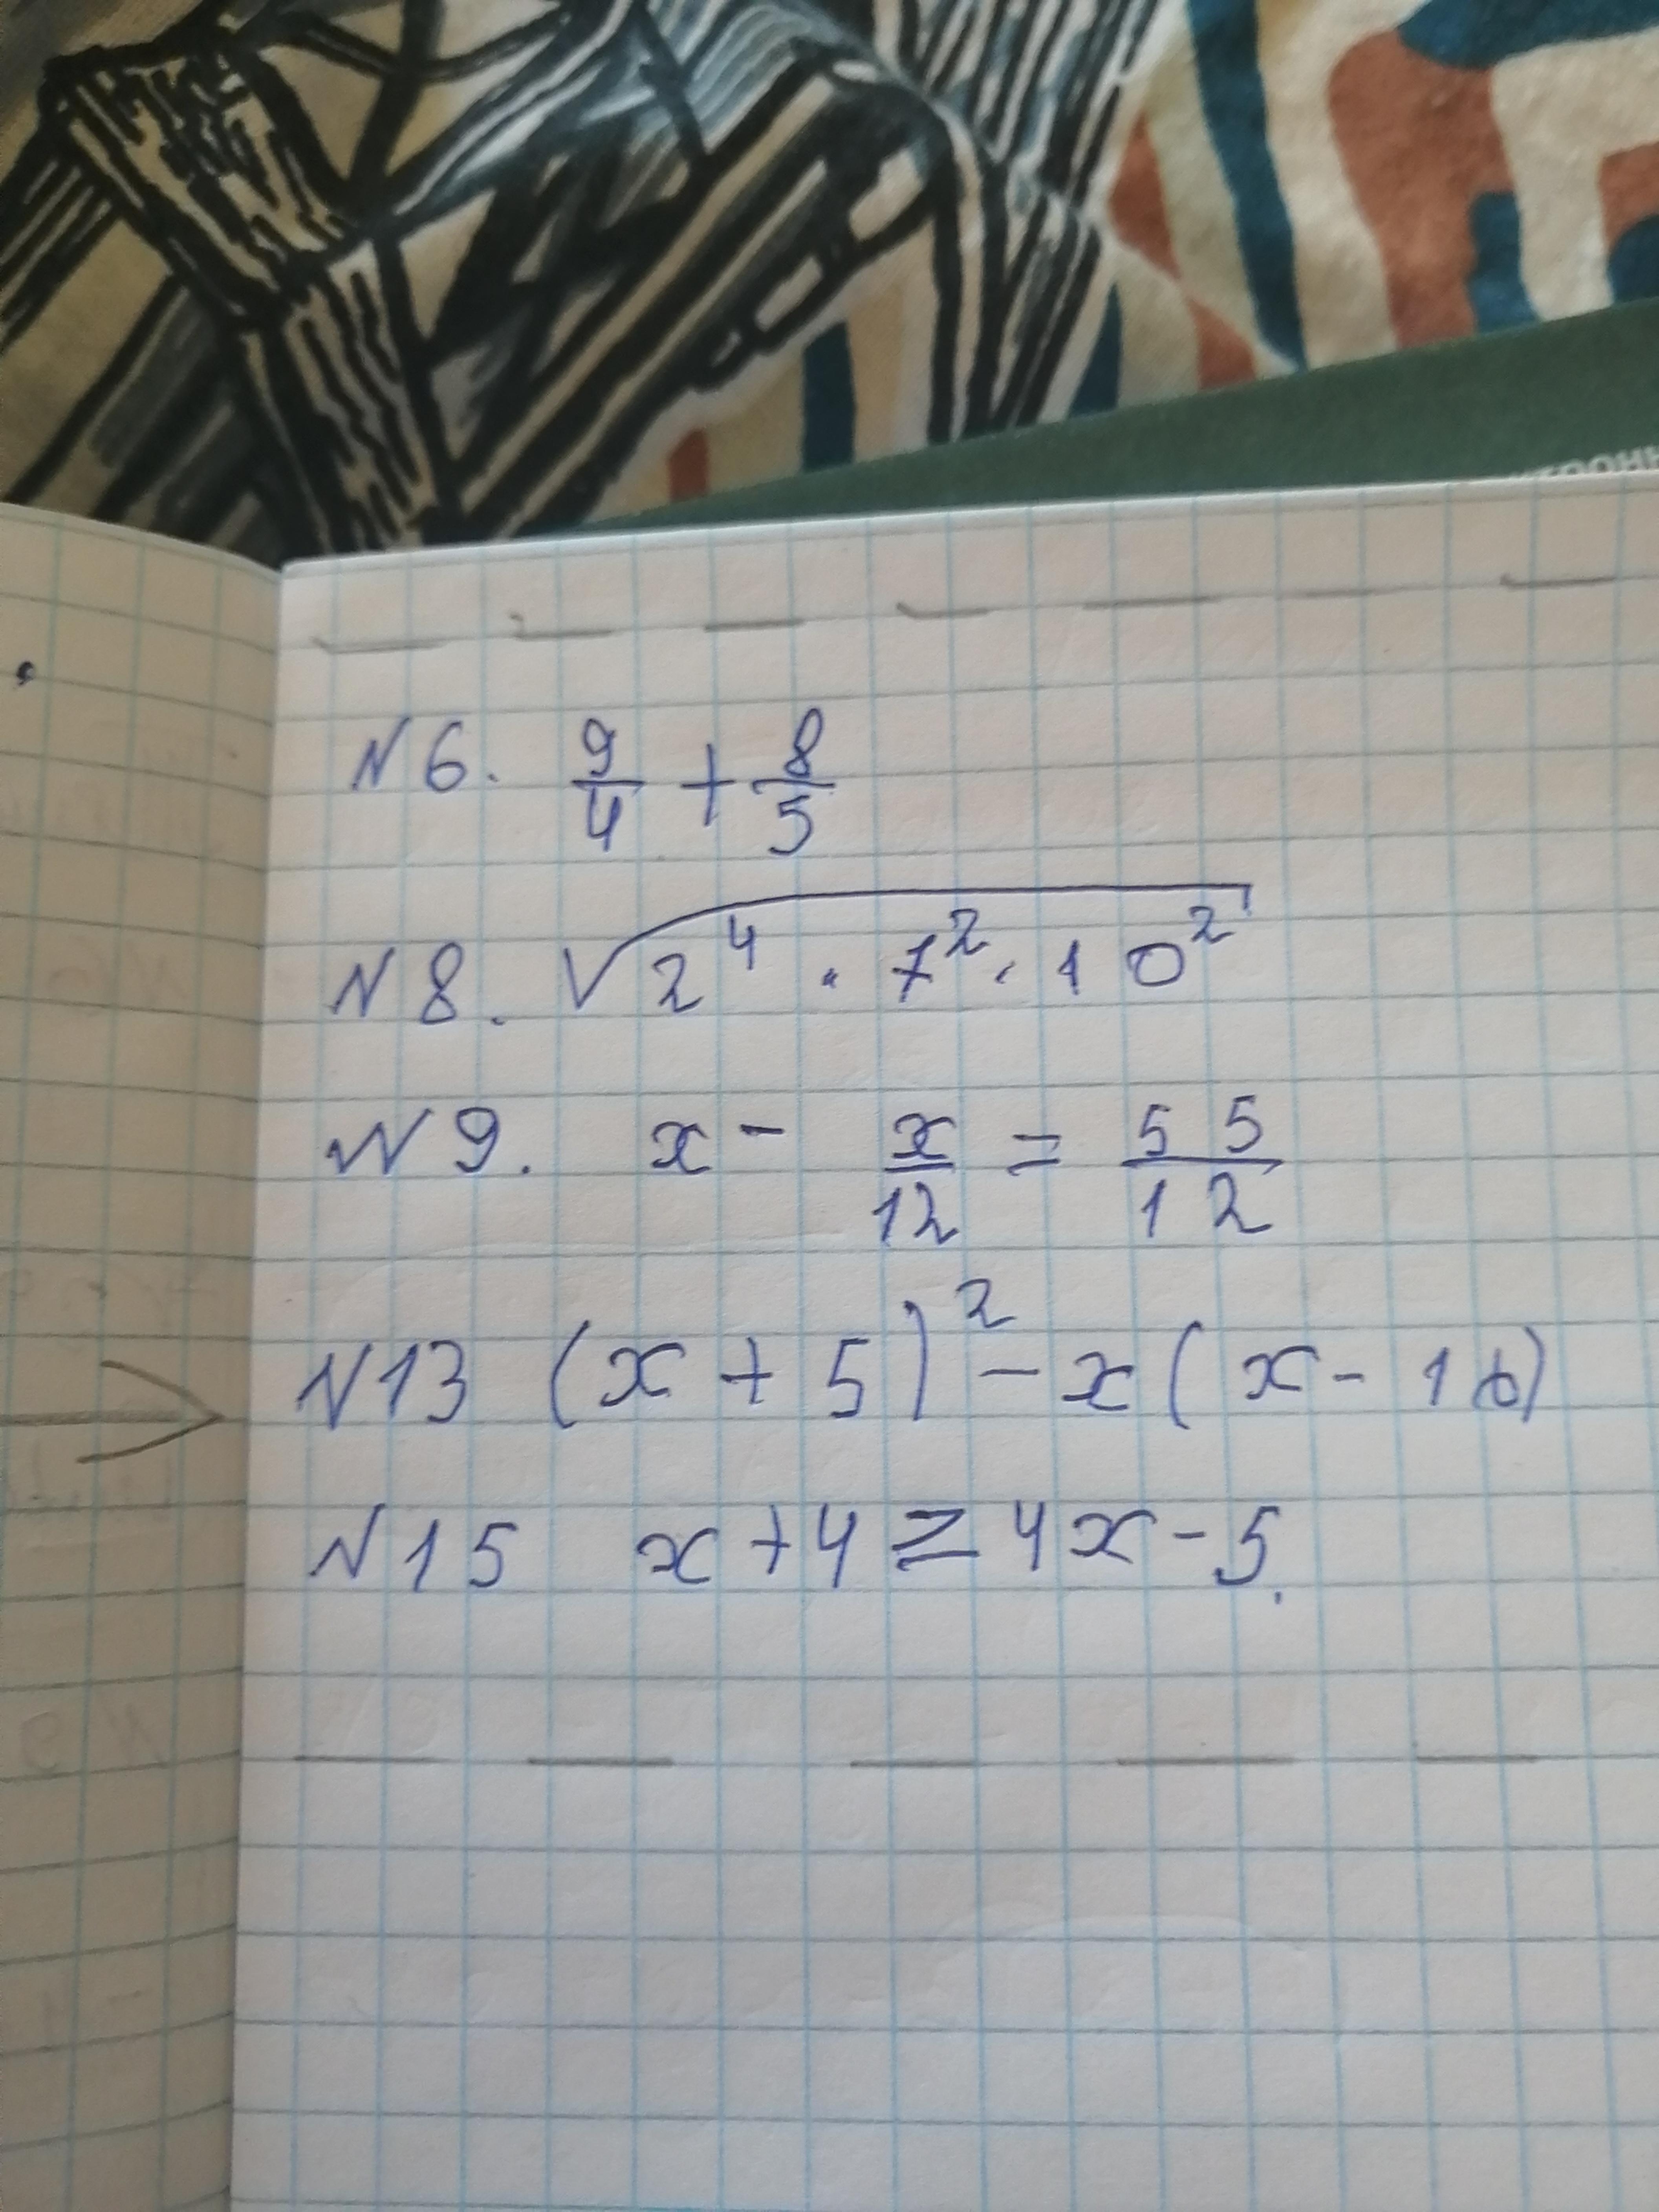 N 6. 9/4 + 8/5
N 8. √(2⁴ · 7² · 10²)
N 9. x - x/12 = 55/12
N 13 (x + 5)² - x(x - 10)
N 15 x + 4 ≥ 4x - 5.